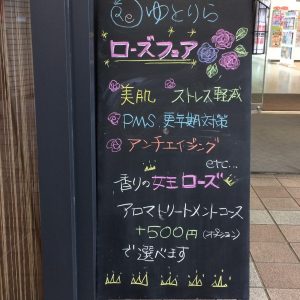 Re ゆとりら
ローズフェア
美肌 ストレス軽減
PMS 更年期対策
アンチエイジング
etc...
香りの女王ローズ
アロマトリートメントコース
+500円(オプション)
で選べます